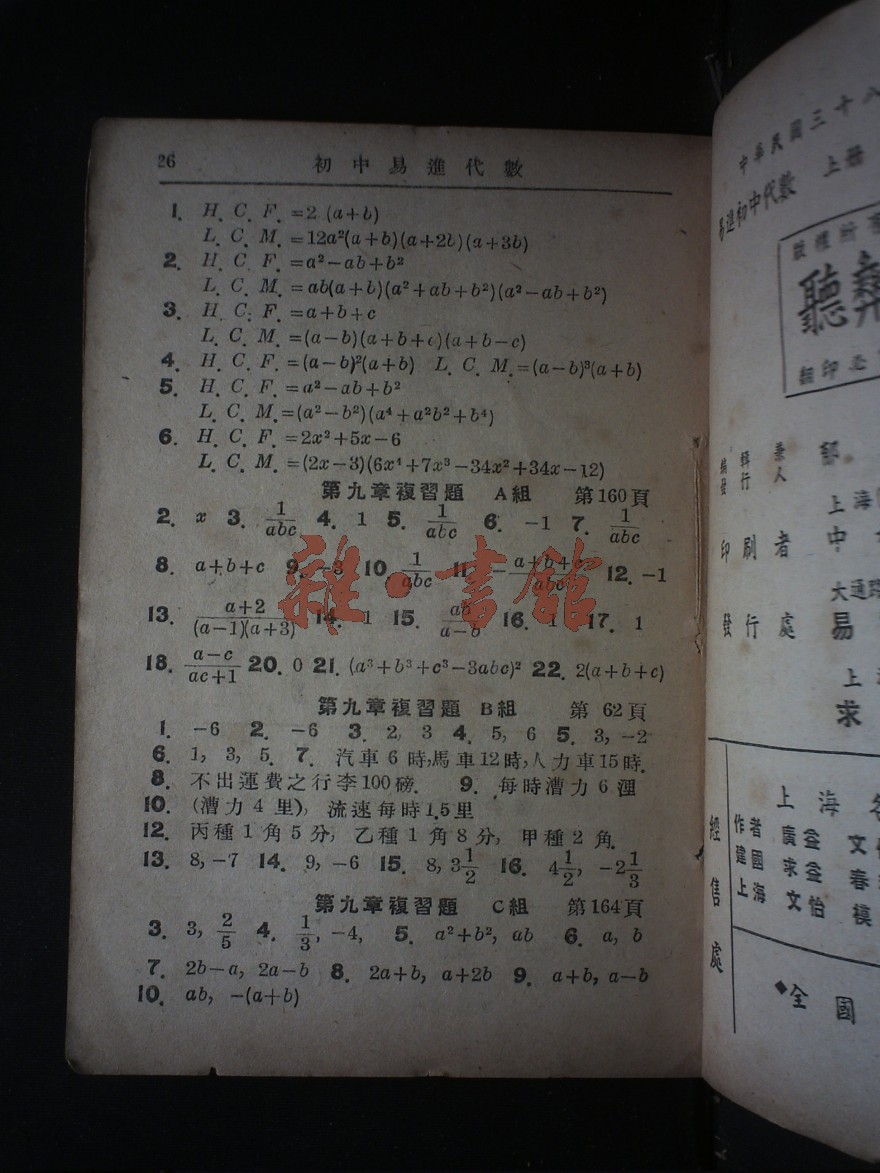 26 初中易進代數
1. H. C. F. =2 (a+b)
L. C. M. =12a²(a+b)(a+2b)(a+3b)
2. H. C. F. =a²-ab+b²
L. C. M. =ab(a+b)(a²+ab+b²)(a²-ab+b²)
3. H. C. F. =a+b+c
L. C. M. =(a-b)(a+b+c)(a+b-c)
4. H. C. F. =(a-b)²(a+b) L. C. M. =(a-b)³(a+b)
5. H. C. F. =a²-ab+b²
L. C. M. =(a²-b²)(a⁴+a²b²+b⁴)
6. H. C. F. =2x²+5x-6
L. C. M. =(2x-3)(6x⁴+7x³-34x²+34x-12)
第九章複習題 A組 第160頁
2. x 3. 1/abc 4. 1 5. 1/abc 6. -1 7. 1/abc
8. a+b+c 9. -3 10. 1/abc 11. -(a+b+c)/abc 12. -1
13. (a+2)/(a-1)(a+3) 14. 1 15. ab/(a-b) 16. 1 17. 1
雜·書館
18. (a-c)/(ac+1) 20. 0 21. (a³+b³+c³-3abc)² 22. 2(a+b+c)
第九章複習題 B組 第62頁
1. -6 2. -6 3. 2, 3 4. 5, 6 5. 3, -2
6. 1, 3, 5. 7. 汽車6時,馬車12時,人力車15時.
8. 不出運費之行李100磅. 9. 每時漕力6浬
10. (漕力4里), 流速每時1.5里
12. 丙種1角5分, 乙種1角8分, 甲種2角.
13. 8, -7 14. 9, -6 15. 8, 3 1/2 16. 4 1/2, -2 1/3
第九章複習題 C組 第164頁
3. 3, 2/5 4. 1/3, -4, 5. a²+b², ab 6. a, b
7. 2b-a, 2a-b 8. 2a+b, a+2b 9. a+b, a-b
10. ab, -(a+b)
中華民國三十八
易進初中代數 上册
版權
聽
翻印必
編輯兼
發行人
上海
印刷者 中
大通路
發行處 易
上
求
上海
經售處
作者 廣益 文
建國 求益 春
上海 文怡 模
◆全國